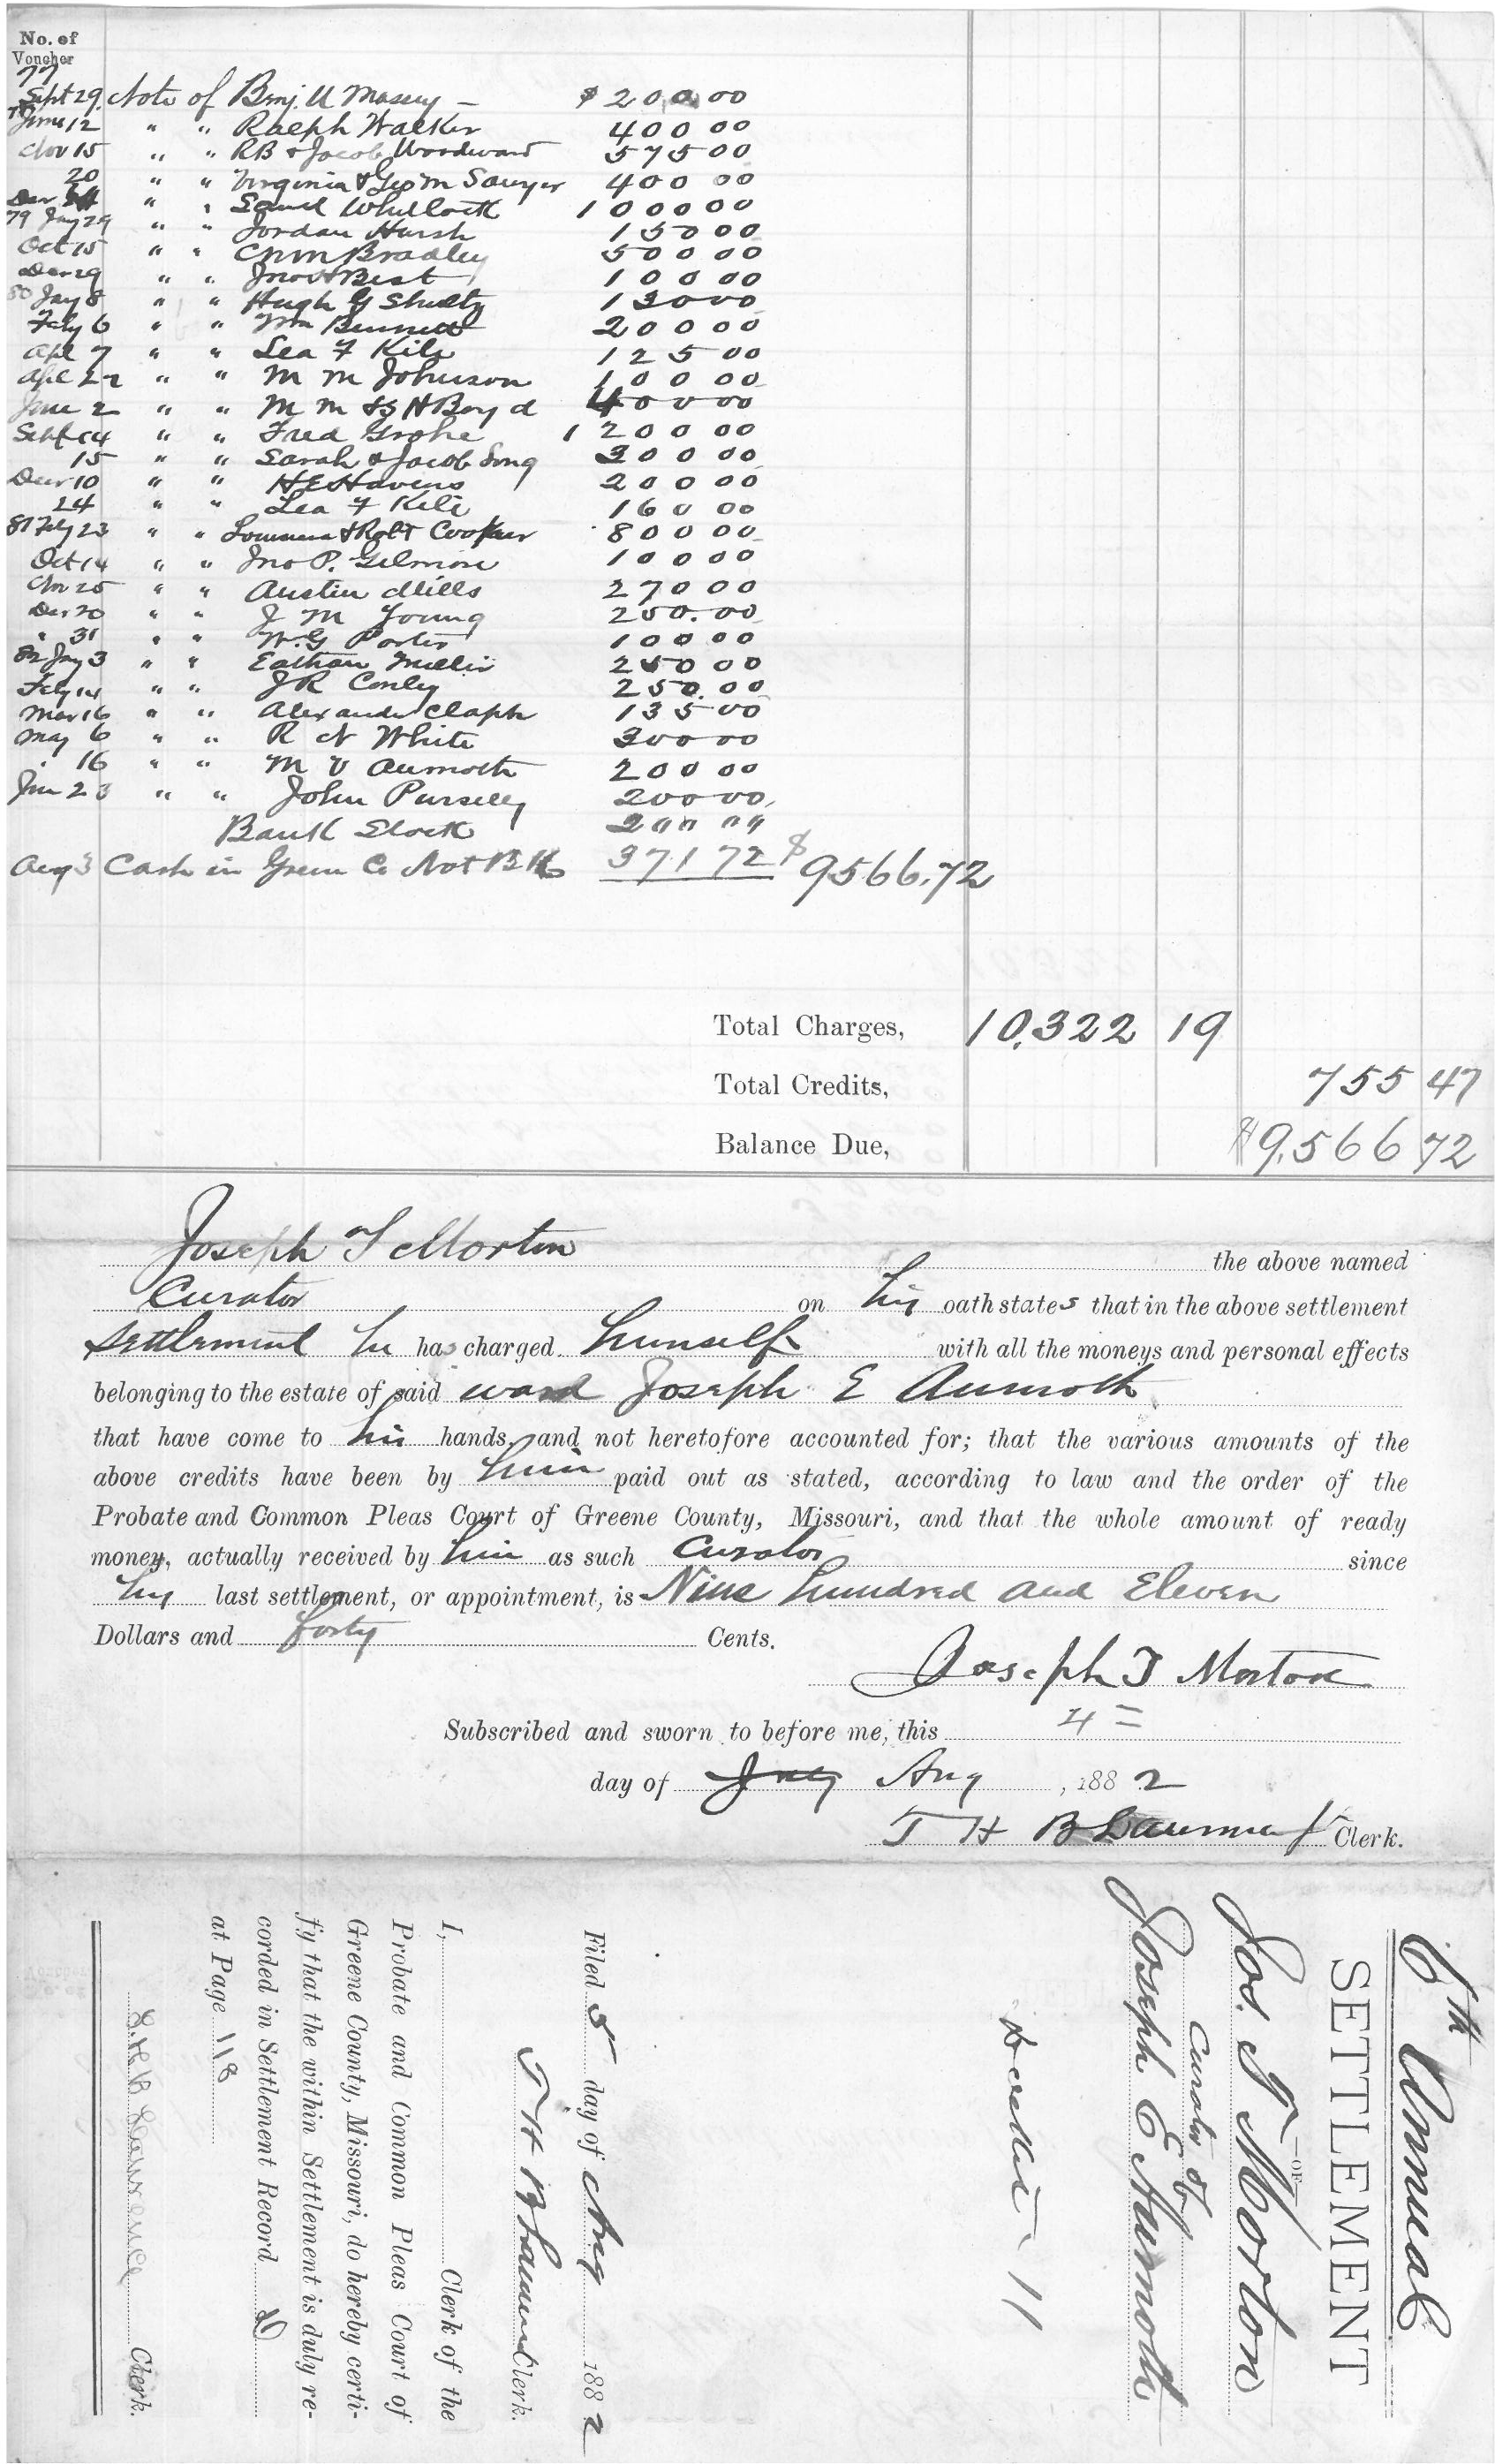 No. of
Voucher
77
Sept 29. Note of Benj. U Massey — $ 200.00
78
June 12 " " Ralph Walker 400 00
Nov 15 " " RB & Jacob Woodward 575 00
20 " " Virginia & Geo M Sawyer 400 00
Dec " " Saml Whitlock 1 000 00
79 Jay 29 " " Jordan Hursh 150 00
Oct 15 " " Bradley 500 00
Dec 29 " " Jno Best 100 00
80 Jay 8 " " Hugh G Shultz 130 00
Feby 6 " " Wm Bennett 200 00
Apl 7 " " Lea F Kile 125 00
Apl 22 " " M M Johnson 100 00
June 2 " " M M & S H Boyd 400 00
Sept 14 " " Fred Grohe 1 200 00
15 " " Sarah & Jacob Long 300 00
Decr 10 " " H E Havens 200 00
24 " " Lea F Kile 160 00
81 Feby 23 " " & Robt Cooper 800 00
Oct 14 " " Jno P. Gilmore 100 00
Nov 25 " " Austin Mills 270 00
Dec 20 " " J M Young 250.00
" 31 " " W. G Porter 100 00
82 Jay 3 " " Eathan Miller 250 00
Feby 14 " " J R Conley 250.00
Mar 16 " " Alexander Claph 135 00
May 6 " " R N White 300 00
" 16 " " M V Aumoth 200 00
Jun 23 " " John Pursley 200 00
Bank Stock 2"" ""
Aug 3 Cash in Green Co Nat B K 371 72 $9566.72
Total Charges, 10,322 19
Total Credits, 755 47
Balance Due, $9,566 72
Joseph T Morton the above named
Curator on his oath states that in the above settlement
settlement he has charged himself with all the moneys and personal effects
belonging to the estate of said ward Joseph E Aumoth
that have come to his hands, and not heretofore accounted for; that the various amounts of the
above credits have been by him paid out as stated, according to law and the order of the
Probate and Common Pleas Court of Greene County, Missouri, and that the whole amount of ready
money, actually received by him as such Curator since
his last settlement, or appointment, is Nine hundred and Eleven
Dollars and forty Cents.
Joseph T Morton
Subscribed and sworn to before me, this 4=
day of July Aug, 1882
T H B Clerk.
6th Annual
SETTLEMENT
—OF—
Jos. T Morton
Curator of
Joseph E Aumoth
Docket — 11
Filed 5 day of Aug 1882
T H B Clerk.
I, Clerk of the
Probate and Common Pleas Court of
Greene County, Missouri, do hereby certi-
fy that the within Settlement is duly re-
corded in Settlement Record 10
at Page 118
T. H B Lawrence Clerk.